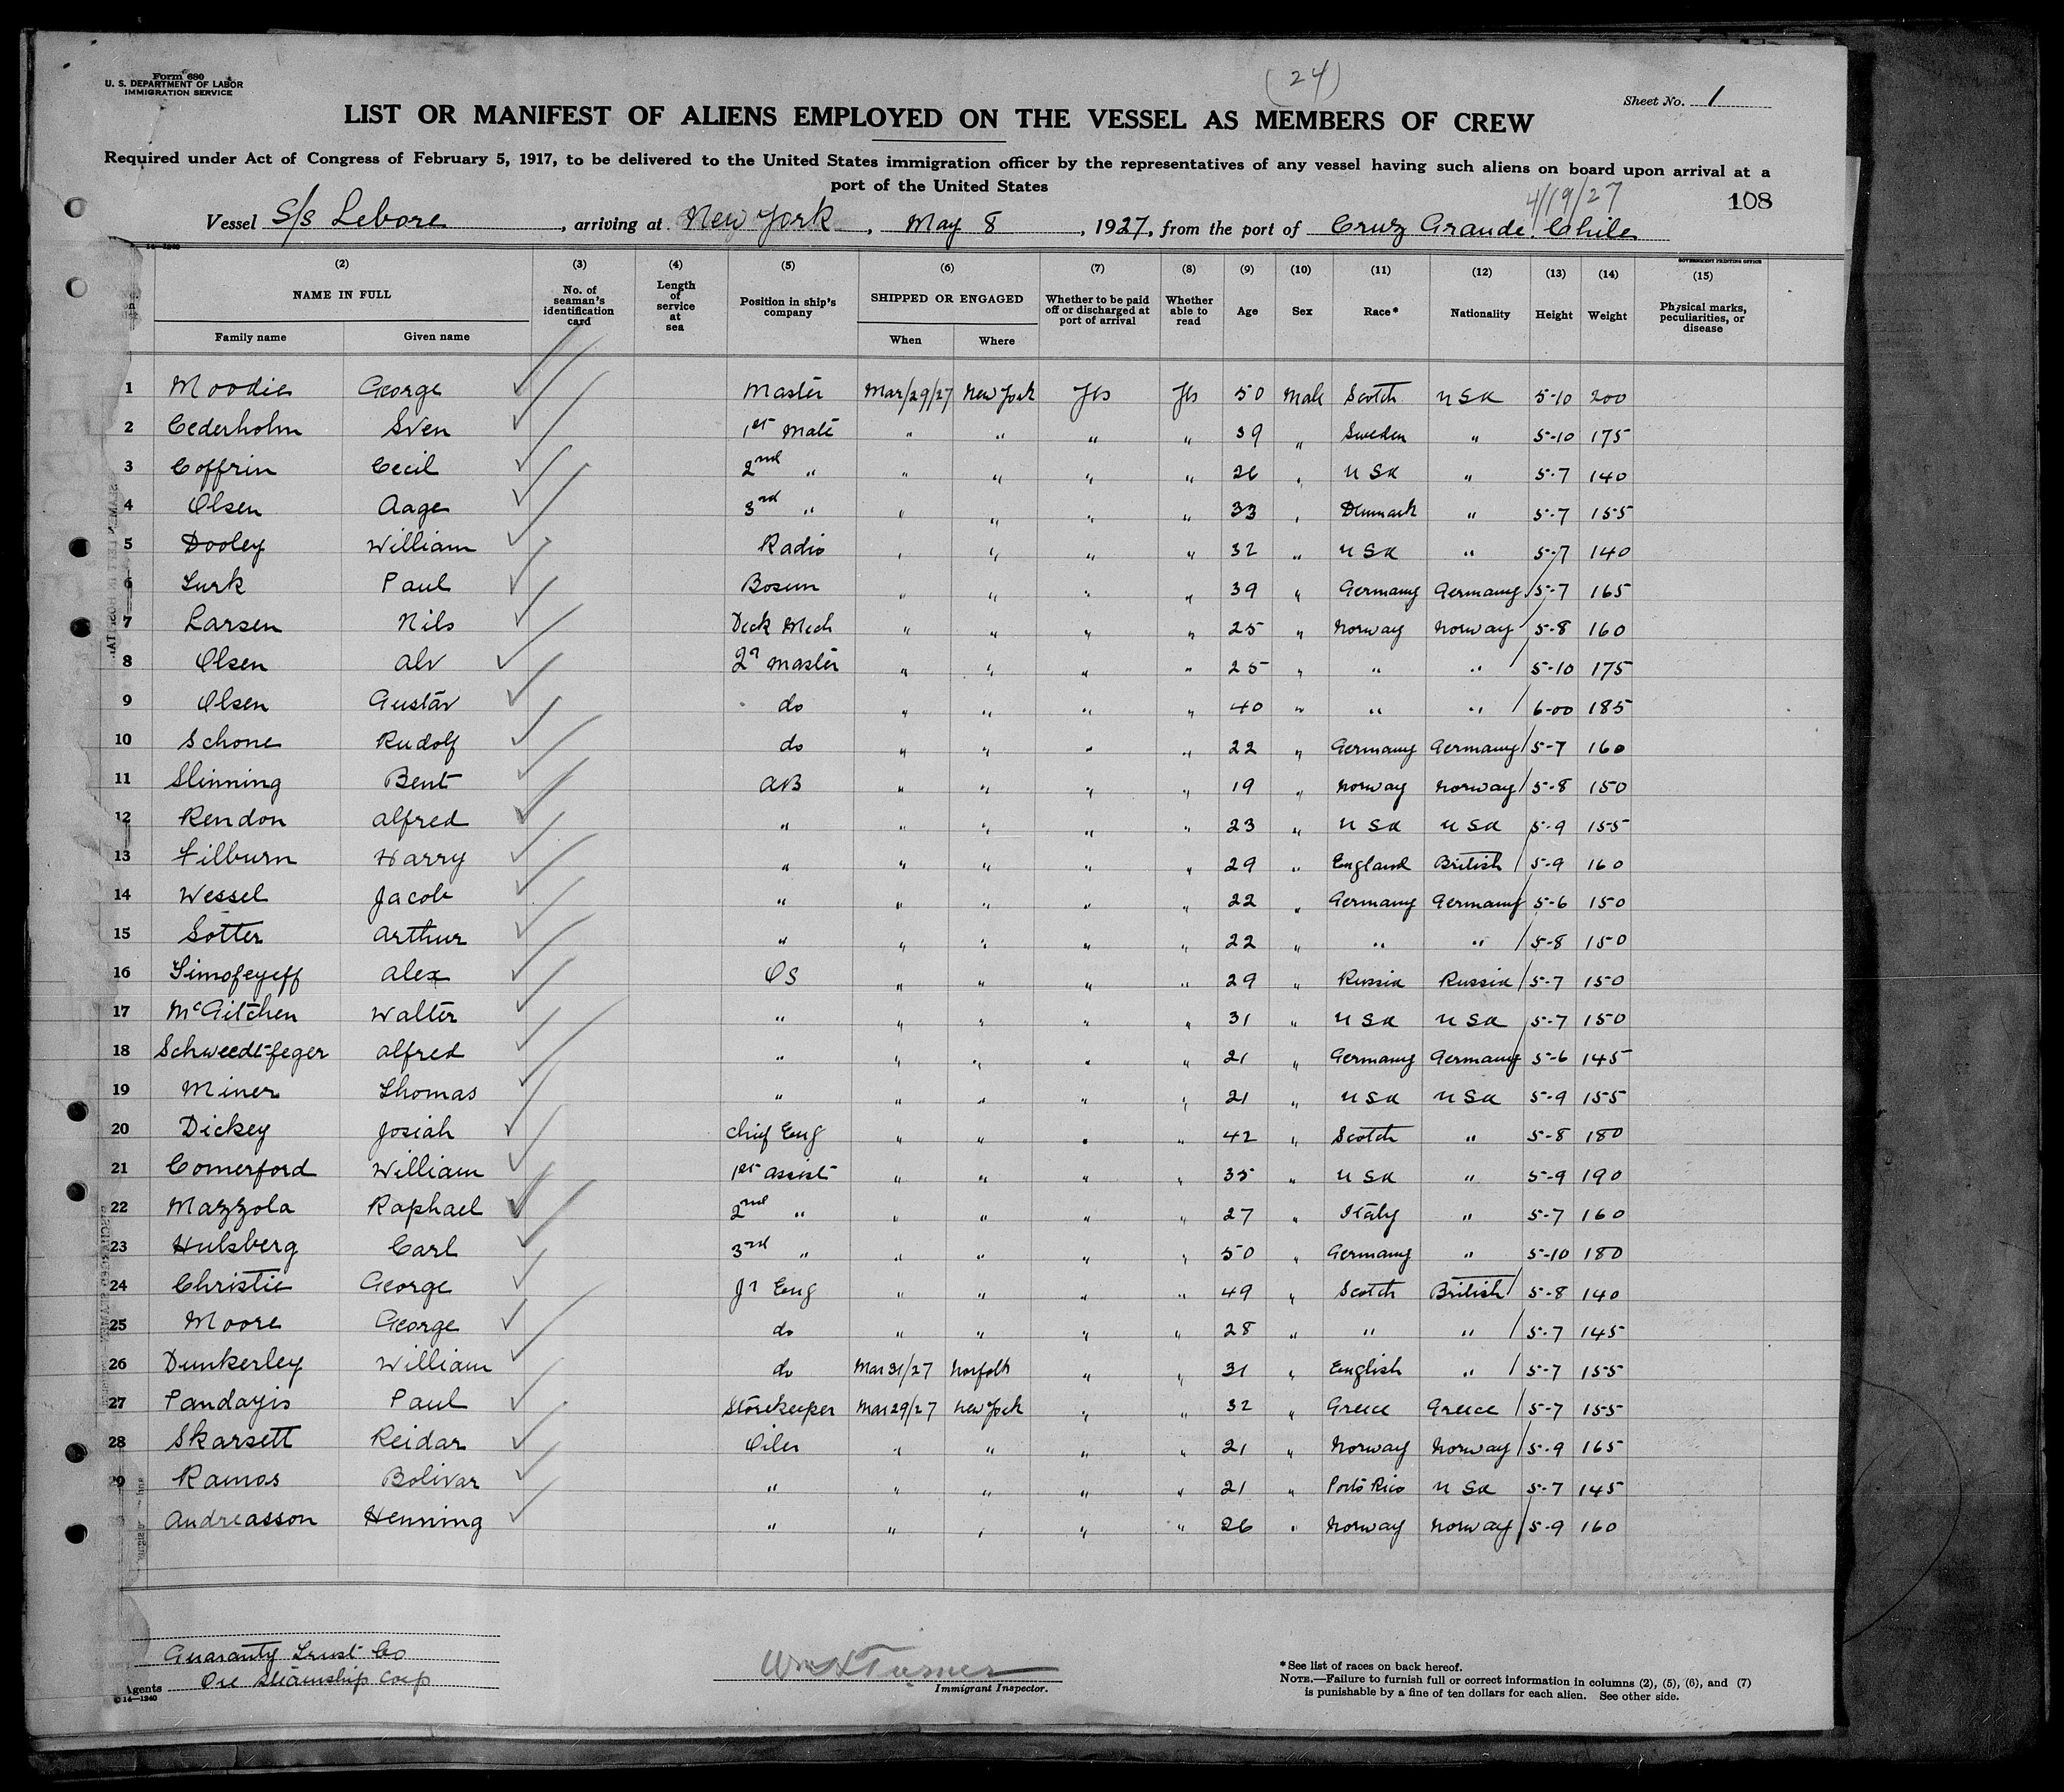 Form 680
U. S. DEPARTMENT OF LABOR
IMMIGRATION SERVICE
(24)
Sheet No. 1
LIST OR MANIFEST OF ALIENS EMPLOYED ON THE VESSEL AS MEMBERS OF CREW
Required under Act of Congress of February 5, 1917, to be delivered to the United States immigration officer by the representatives of any vessel having such aliens on board upon arrival at a
port of the United States
4/19/27
108
Vessel S/s Lebore, arriving at New York, May 8, 1927, from the port of Cruz Grande. Chile
14-1240
GOVERNMENT PRINTING OFFICE
(2) (3) (4) (5) (6) (7) (8) (9) (10) (11) (12) (13) (14) (15)
NAME IN FULL No. of seaman's identification card Length of service at sea Position in ship's company SHIPPED OR ENGAGED Whether to be paid off or discharged at port of arrival Whether able to read Age Sex Race* Nationality Height Weight Physical marks, peculiarities, or disease
Family name Given name When Where
1 Moodie George Master Mar/29/27 New York Yes Yes 50 Male Scotch USA 5-10 200
2 Cederholm Sven 1st Mate " " " " 39 " Sweden " 5-10 175
3 Coffrin Cecil 2nd " " " " " 26 " USA " 5-7 140
4 Olsen Aage 3rd " " " " " 33 " Denmark " 5-7 155
5 Dooley William Radio " " " " 32 " USA " 5-7 140
6 Lurk Paul Bosun " " " " 39 " Germany Germany 5-7 165
7 Larsen Nils Deck Mech " " " " 25 " Norway Norway 5-8 160
8 Olsen Alv Qr Master " " " " 25 " " " 5-10 175
9 Olsen Gustav do " " " " 40 " " " 6-00 185
10 Schone Rudolf do " " " " 22 " Germany Germany 5-7 160
11 Slinning Bent AB " " " " 19 " Norway Norway 5-8 150
12 Rendon Alfred " " " " " 23 " USA USA 5-9 155
13 Filburn Harry " " " " " 29 " England British 5-9 160
14 Wessel Jacob " " " " " 22 " Germany Germany 5-6 150
15 Sotter Arthur " " " " " 22 " " " 5-8 150
16 Timofeyeff Alex OS " " " " 29 " Russia Russia 5-7 150
17 McGitchen Walter " " " " " 31 " USA USA 5-7 150
18 Schweedt-feger Alfred " " " " " 21 " Germany Germany 5-6 145
19 Miner Thomas " " " " " 21 " USA USA 5-9 155
20 Dickey Josiah Chief Eng " " " " 42 " Scotch " 5-8 180
21 Comerford William 1st assist " " " " 35 " USA " 5-9 190
22 Mazzola Raphael 2nd " " " " " 27 " Italy " 5-7 160
23 Hulsberg Carl 3rd " " " " " 50 " Germany " 5-10 180
24 Christie George Jr Eng " " " " 49 " Scotch British 5-8 140
25 Moore George do " " " " 28 " " " 5-7 145
26 Dunkerley William do Mar 31/27 Norfolk " " 31 " English " 5-7 155
27 Pandazis Paul Storekeeper Mar 29/27 New York " " 32 " Greece Greece 5-7 155
28 Skarsett Reidar Oiler " " " " 21 " Norway Norway 5-9 165
29 Ramos Bolivar " " " " " 21 " Porto Rico USA 5-7 145
Andreasson Henning " " " " " 26 " Norway Norway 5-9 160
Guaranty Trust Co
Ore Steamship Corp
Agents
14-1240
Wm H Turner
Immigrant Inspector.
*See list of races on back hereof.
NOTE.—Failure to furnish full or correct information in columns (2), (5), (6), and (7)
is punishable by a fine of ten dollars for each alien. See other side.